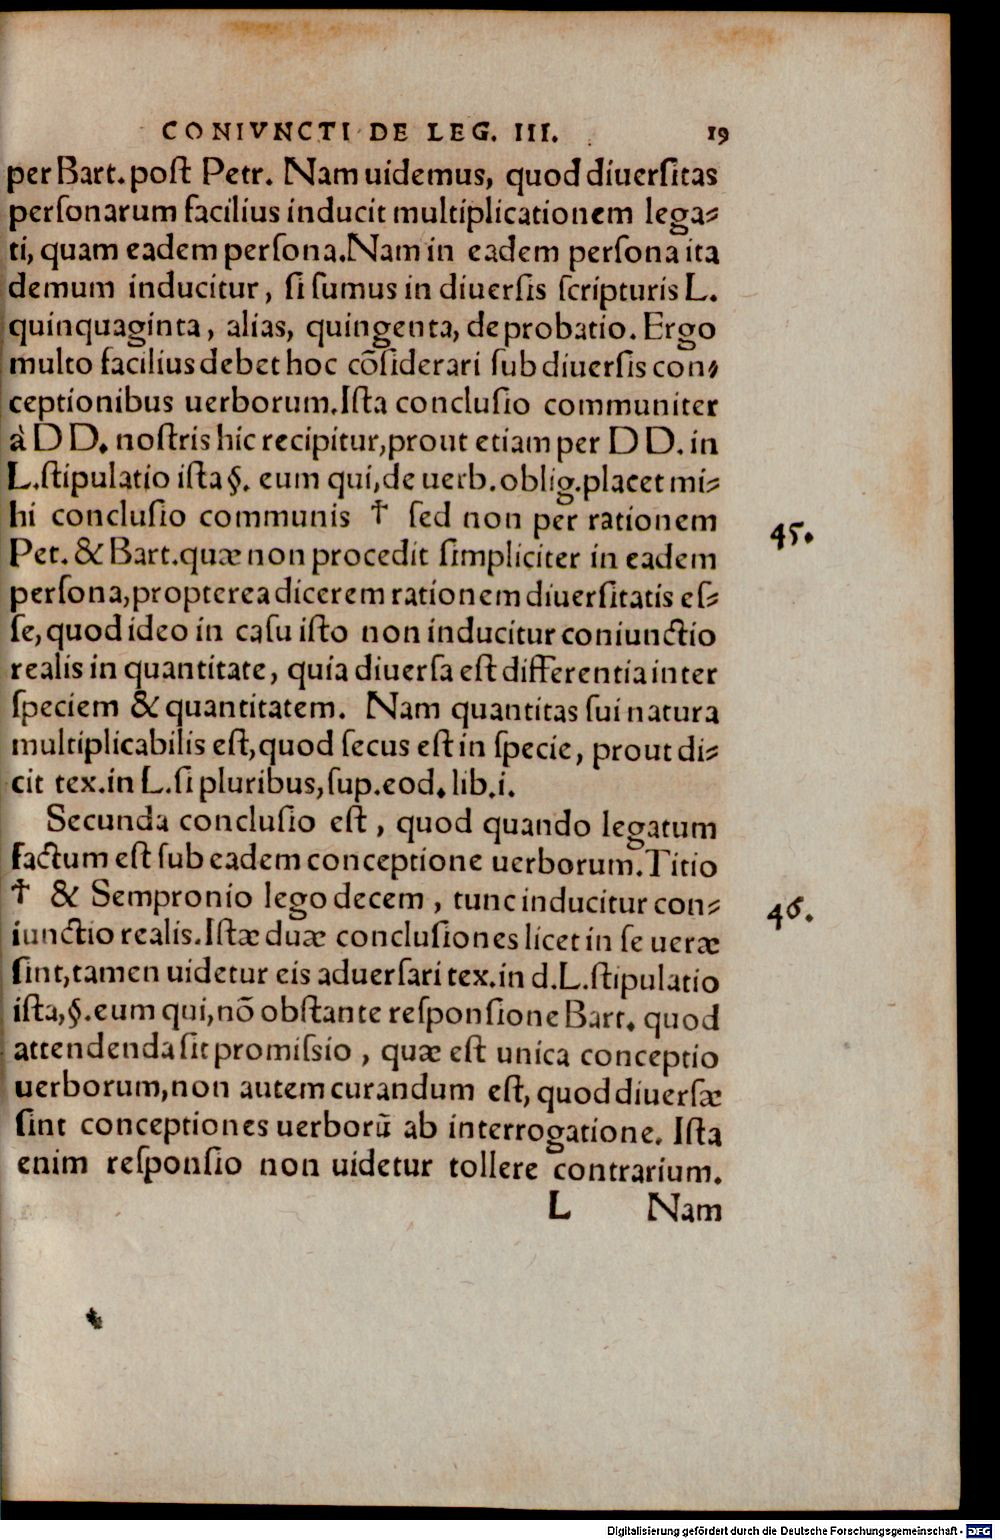 CONIVNCTI DE LEG. III. 19
per Bart. poſt Petr. Nam uidemus, quod diuerſitas
perſonarum facilius inducit multiplicationem lega⸗
ti, quam eadem perſona. Nam in eadem perſona ita
demum inducitur, ſi ſumus in diuerſis ſcripturis L.
quinquaginta, alias, quingenta, de probatio. Ergo
multo facilius debet hoc cõſiderari ſub diuerſis con⸗
ceptionibus uerborum. Iſta concluſio communiter
à DD. noſtris hic recipitur, prout etiam per DD. in
L. ſtipulatio iſta §. eum qui, de uerb. oblig. placet mi⸗
hi concluſio communis † ſed non per rationem 45.
Pet. & Bart. quæ non procedit ſimpliciter in eadem
perſona, propterea dicerem rationem diuerſitatis eſ⸗
ſe, quod ideo in caſu iſto non inducitur coniunctio
realis in quantitate, quia diuerſa eſt differentia inter
ſpeciem & quantitatem. Nam quantitas ſui natura
multiplicabilis eſt, quod ſecus eſt in ſpecie, prout di⸗
cit tex. in L. ſi pluribus, ſup. eod. lib. i.
Secunda concluſio eſt, quod quando legatum
factum eſt ſub eadem conceptione uerborum. Titio
† & Sempronio lego decem, tunc inducitur con⸗ 46.
iunctio realis. Iſtæ duæ concluſiones licet in ſe ueræ
ſint, tamen uidetur eis aduerſari tex. in d. L. ſtipulatio
iſta, §. eum qui, nõ obſtante reſponſione Bart. quod
attendenda ſit promiſsio, quæ eſt unica conceptio
uerborum, non autem curandum eſt, quod diuerſæ
ſint conceptiones uerborũ ab interrogatione. Iſta
enim reſponſio non uidetur tollere contrarium.
L Nam
Digitalisierung gefördert durch die Deutsche Forschungsgemeinschaft - DFG